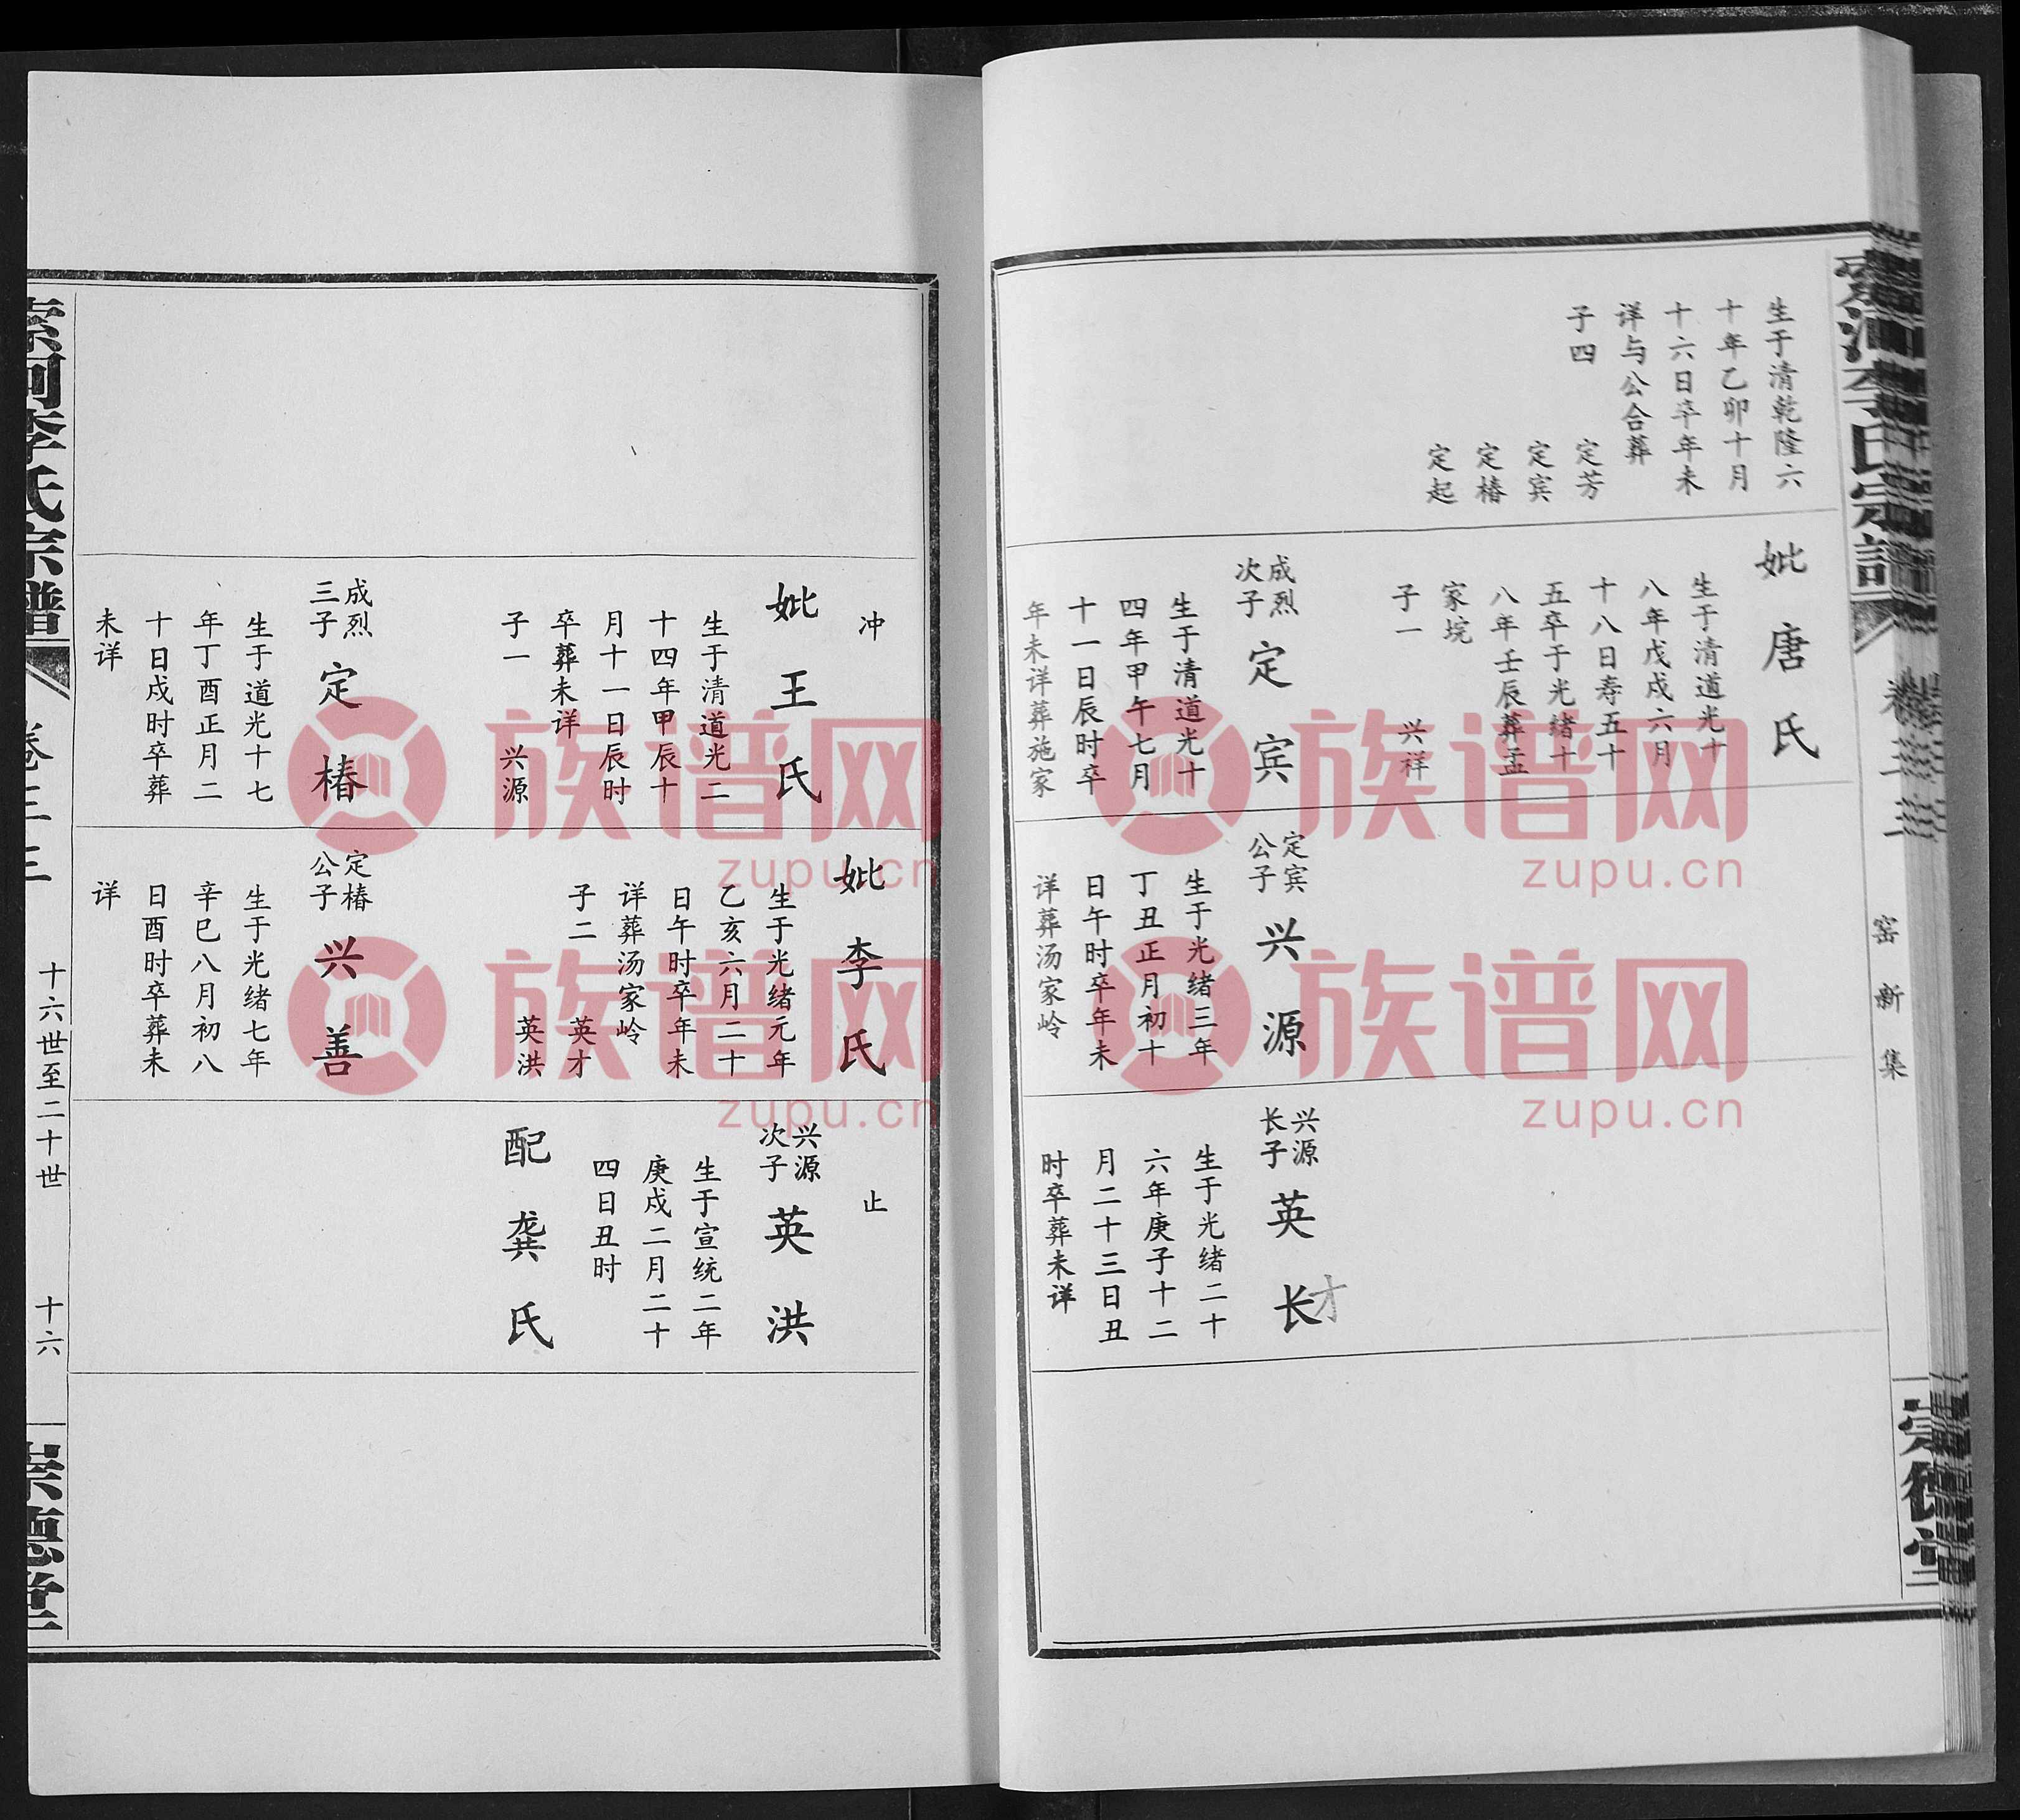 生于清乾隆六
十年乙卯十月
十六日卒年未
详与公合葬
子四
定芳
定宾
定椿
定起
妣唐氏
生于清道光十
八年戊戌六月
十八日寿五十
五卒于光绪十
八年壬辰葬孟
家垸
子一
兴祥
成烈
次子
定宾
生于清道光十
四年甲午七月
十一日辰时卒
年未详葬施家
定宾
公子
兴源
生于光绪三年
丁丑正月初十
日午时卒年未
详葬汤家岭
兴源
长子
英长
才
生于光绪二十
六年庚子十二
月二十三日丑
时卒葬未详
窑新集
冲
妣王氏
生于清道光二
十四年甲辰十
月十一日辰时
卒葬未详
子一
兴源
成烈
三子
定椿
生于道光十七
年丁酉正月二
十日戍时卒葬
未详
妣李氏
生于光绪元年
乙亥六月二十
日午时卒年未
详葬汤家岭
子二
英才
英洪
定椿
公子
兴善
生于光绪七年
辛巳八月初八
日酉时卒葬未
详
止
兴源
次子
英洪
生于宣统二年
庚戍二月二十
四日丑时
配龚氏
索河李氏宗谱
卷三三
十六世至二十世
十六
崇德堂
族谱网
zupu.cn
族谱网
zupu.cn
族谱网
zupu.cn
族谱网
zupu.cn